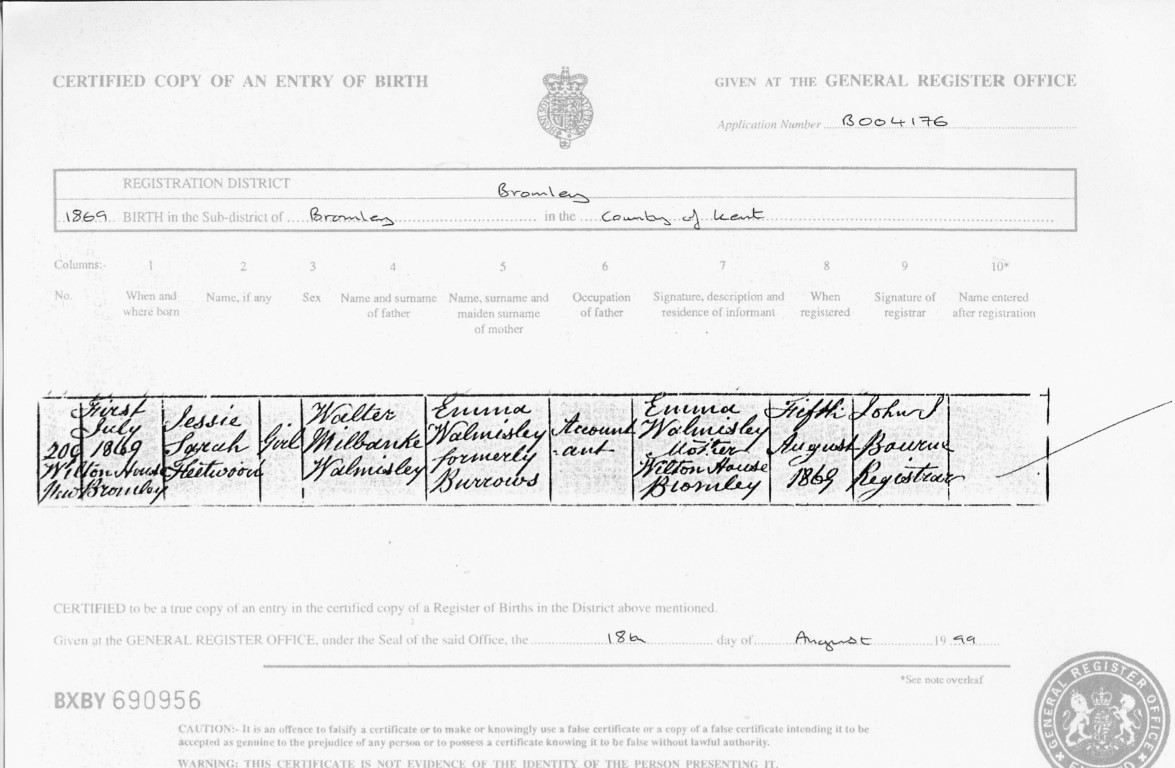 CERTIFIED COPY OF AN ENTRY OF BIRTH
GIVEN AT THE GENERAL REGISTER OFFICE
Application Number B004176
REGISTRATION DISTRICT Bromley
1869 BIRTH in the Sub-district of Bromley in the County of Kent
Columns:- 1 2 3 4 5 6 7 8 9 10*
No. When and where born Name, if any Sex Name and surname of father Name, surname and maiden surname of mother Occupation of father Signature, description and residence of informant When registered Signature of registrar Name entered after registration
209
First
July
1869
Wilton House
New Bromley
Jessie
Sarah
Fleetwood
Girl
Walter
Milbanke
Walmisley
Emma
Walmisley
formerly
Burrows
Account
ant
Emma
Walmisley
Mother
Wilton House
Bromley
Fifth
August
1869
John J
Bourne
Registrar
CERTIFIED to be a true copy of an entry in the certified copy of a Register of Births in the District above mentioned.
Given at the GENERAL REGISTER OFFICE, under the Seal of the said Office, the 18th day of August 1999
*See note overleaf
BXBY 690956
CAUTION:- It is an offence to falsify a certificate or to make or knowingly use a false certificate or a copy of a false certificate intending it to be
accepted as genuine to the prejudice of any person or to possess a certificate knowing it to be false without lawful authority.
WARNING: THIS CERTIFICATE IS NOT EVIDENCE OF THE IDENTITY OF THE PERSON PRESENTING IT.
GENERAL REGISTER OFFICE